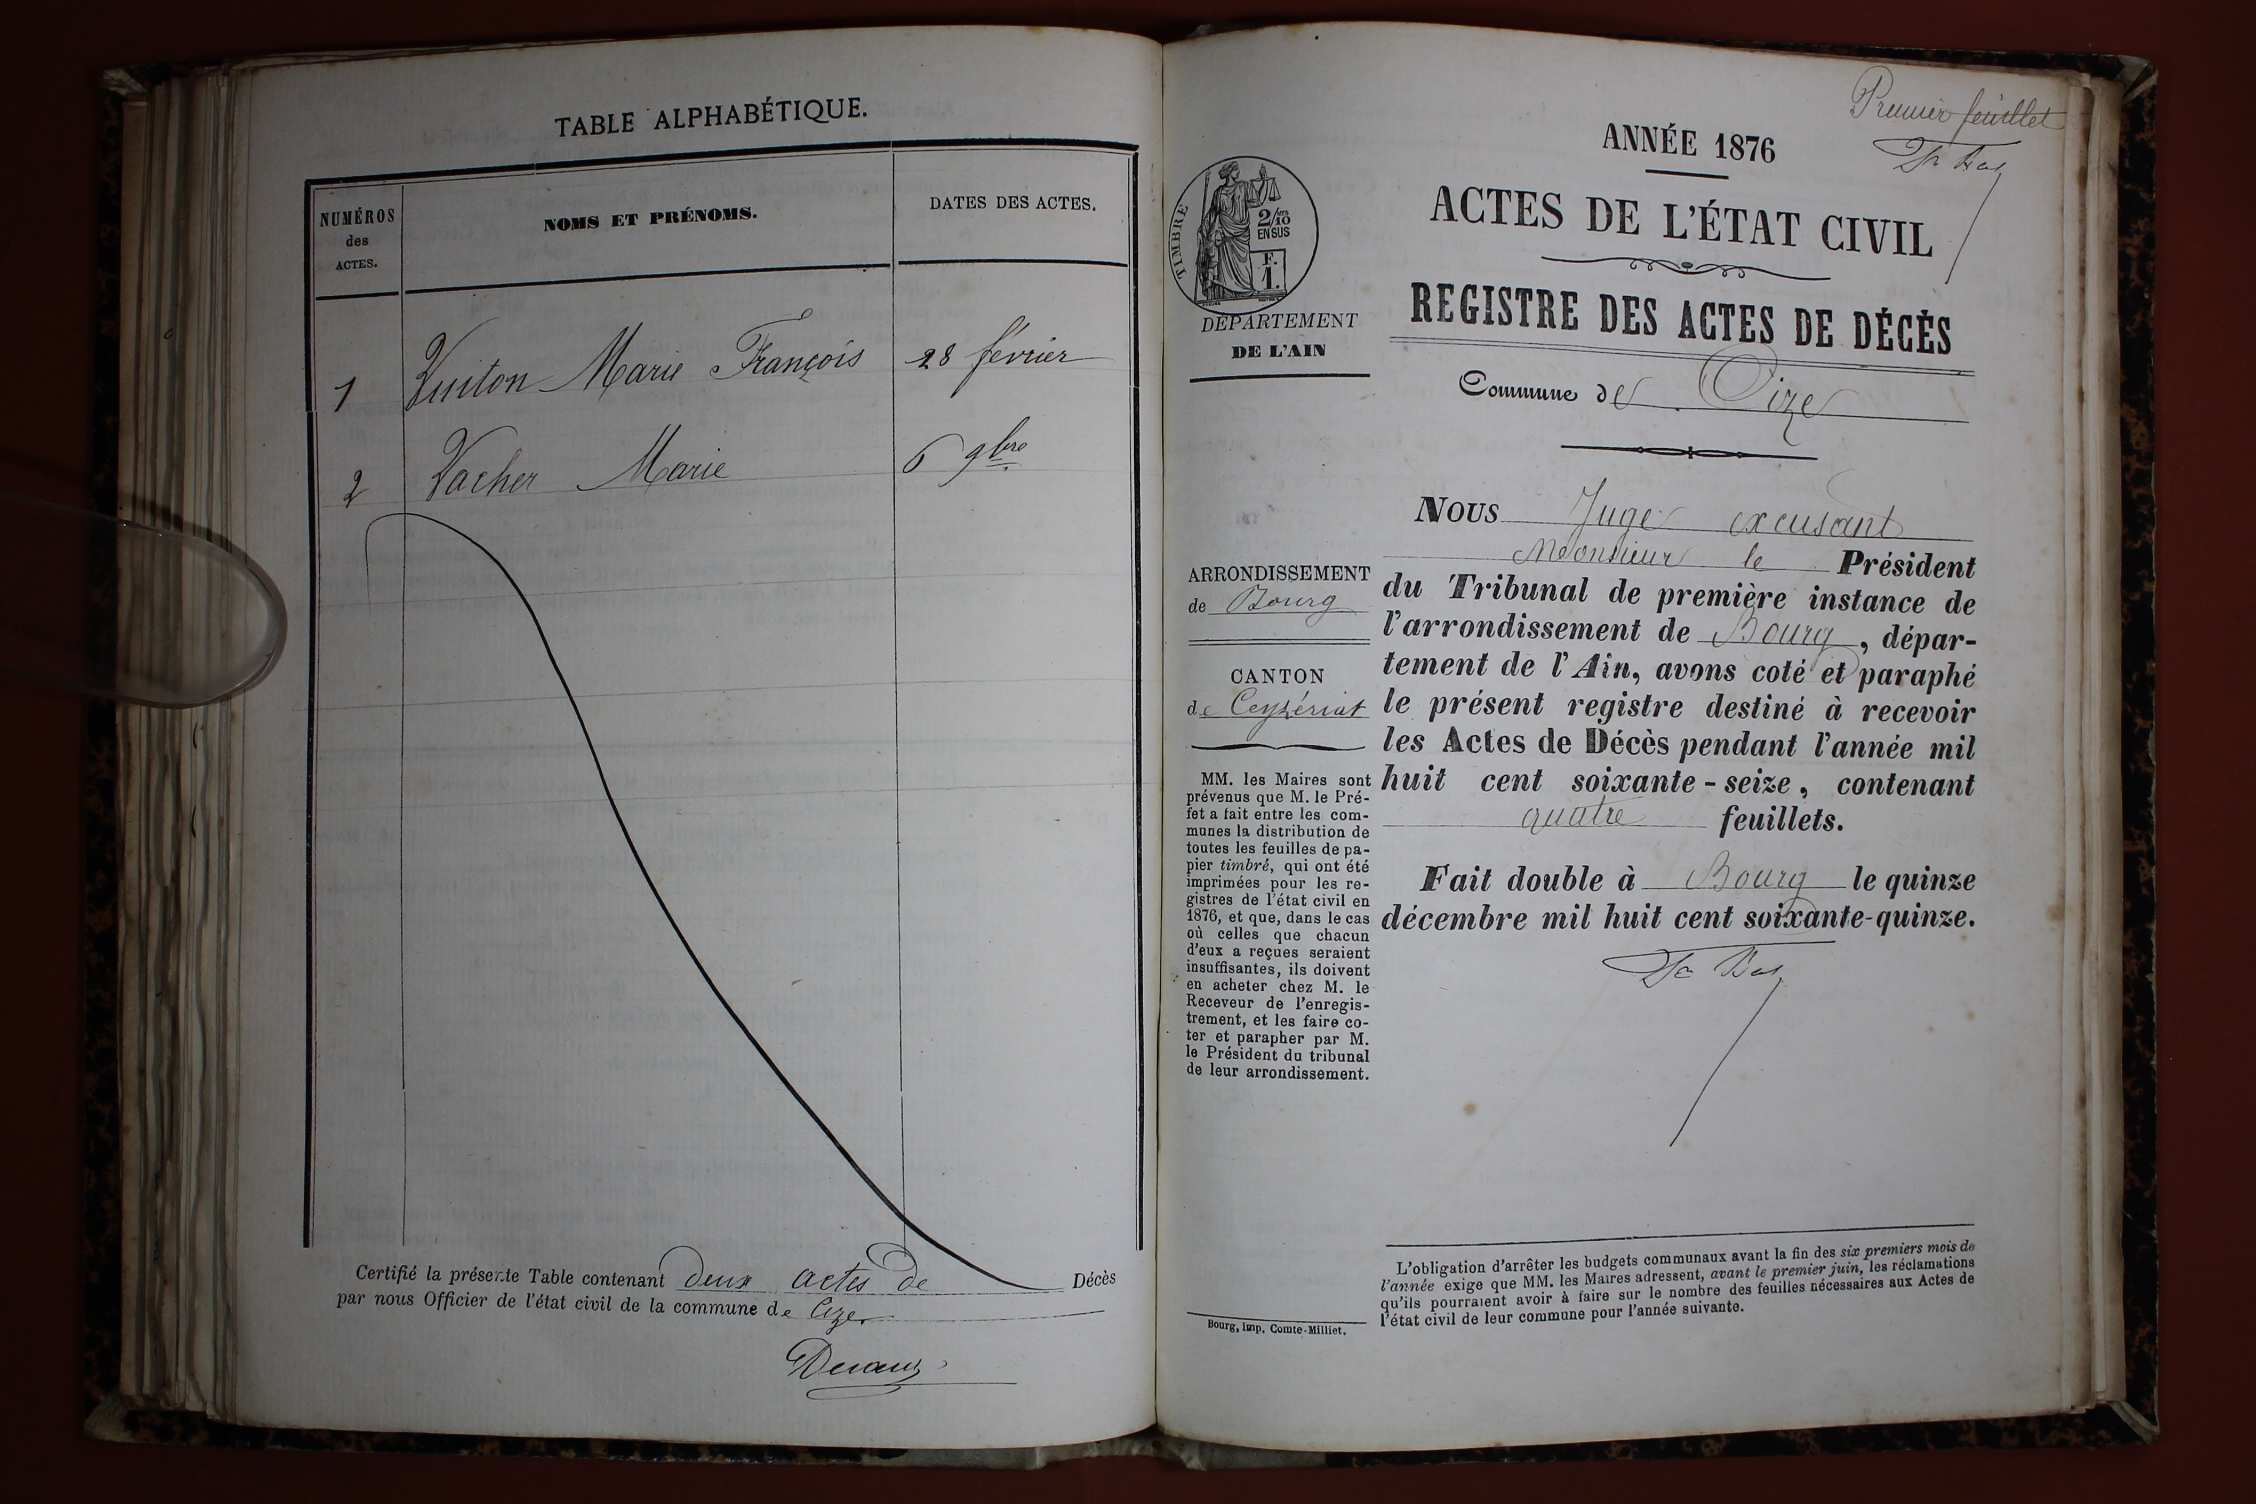 TABLE ALPHABÉTIQUE.
NUMÉROS
des
ACTES.
NOMS ET PRÉNOMS.
DATES DES ACTES.
1 Vuiton Marie François 28 février
2 Vacher Marie 6 9bre
Certifié la présente Table contenant deux actes de Décès
par nous Officier de l'état civil de la commune de Cize
Premier feuillet
ANNÉE 1876
ACTES DE L'ÉTAT CIVIL
REGISTRE DES ACTES DE DÉCÈS
Commune de Cize
TIMBRE
2/10
EN SUS
F.
1.
DÉPARTEMENT
DE L'AIN
ARRONDISSEMENT
de Bourg
CANTON
de Ceyzériat
MM. les Maires sont
prévenus que M. le Pré-
fet a fait entre les com-
munes la distribution de
toutes les feuilles de pa-
pier timbré, qui ont été
imprimées pour les re-
gistres de l'état civil en
1876, et que, dans le cas
où celles que chacun
d'eux a reçues seraient
insuffisantes, ils doivent
en acheter chez M. le
Receveur de l'enregis-
trement, et les faire co-
ter et parapher par M.
le Président du tribunal
de leur arrondissement.
Bourg, Imp. Comte-Milliet.
NOUS Juge excusant
Monsieur le Président
du Tribunal de première instance de
l'arrondissement de Bourg, dépar-
tement de l'Ain, avons coté et paraphé
le présent registre destiné à recevoir
les Actes de Décès pendant l'année mil
huit cent soixante-seize, contenant
quatre feuillets.
Fait double à Bourg le quinze
décembre mil huit cent soixante-quinze.
L'obligation d'arrêter les budgets communaux avant la fin des six premiers mois de
l'année exige que MM. les Maires adressent, avant le premier juin, les réclamations
qu'ils pourraient avoir à faire sur le nombre des feuilles nécessaires aux Actes de
l'état civil de leur commune pour l'année suivante.